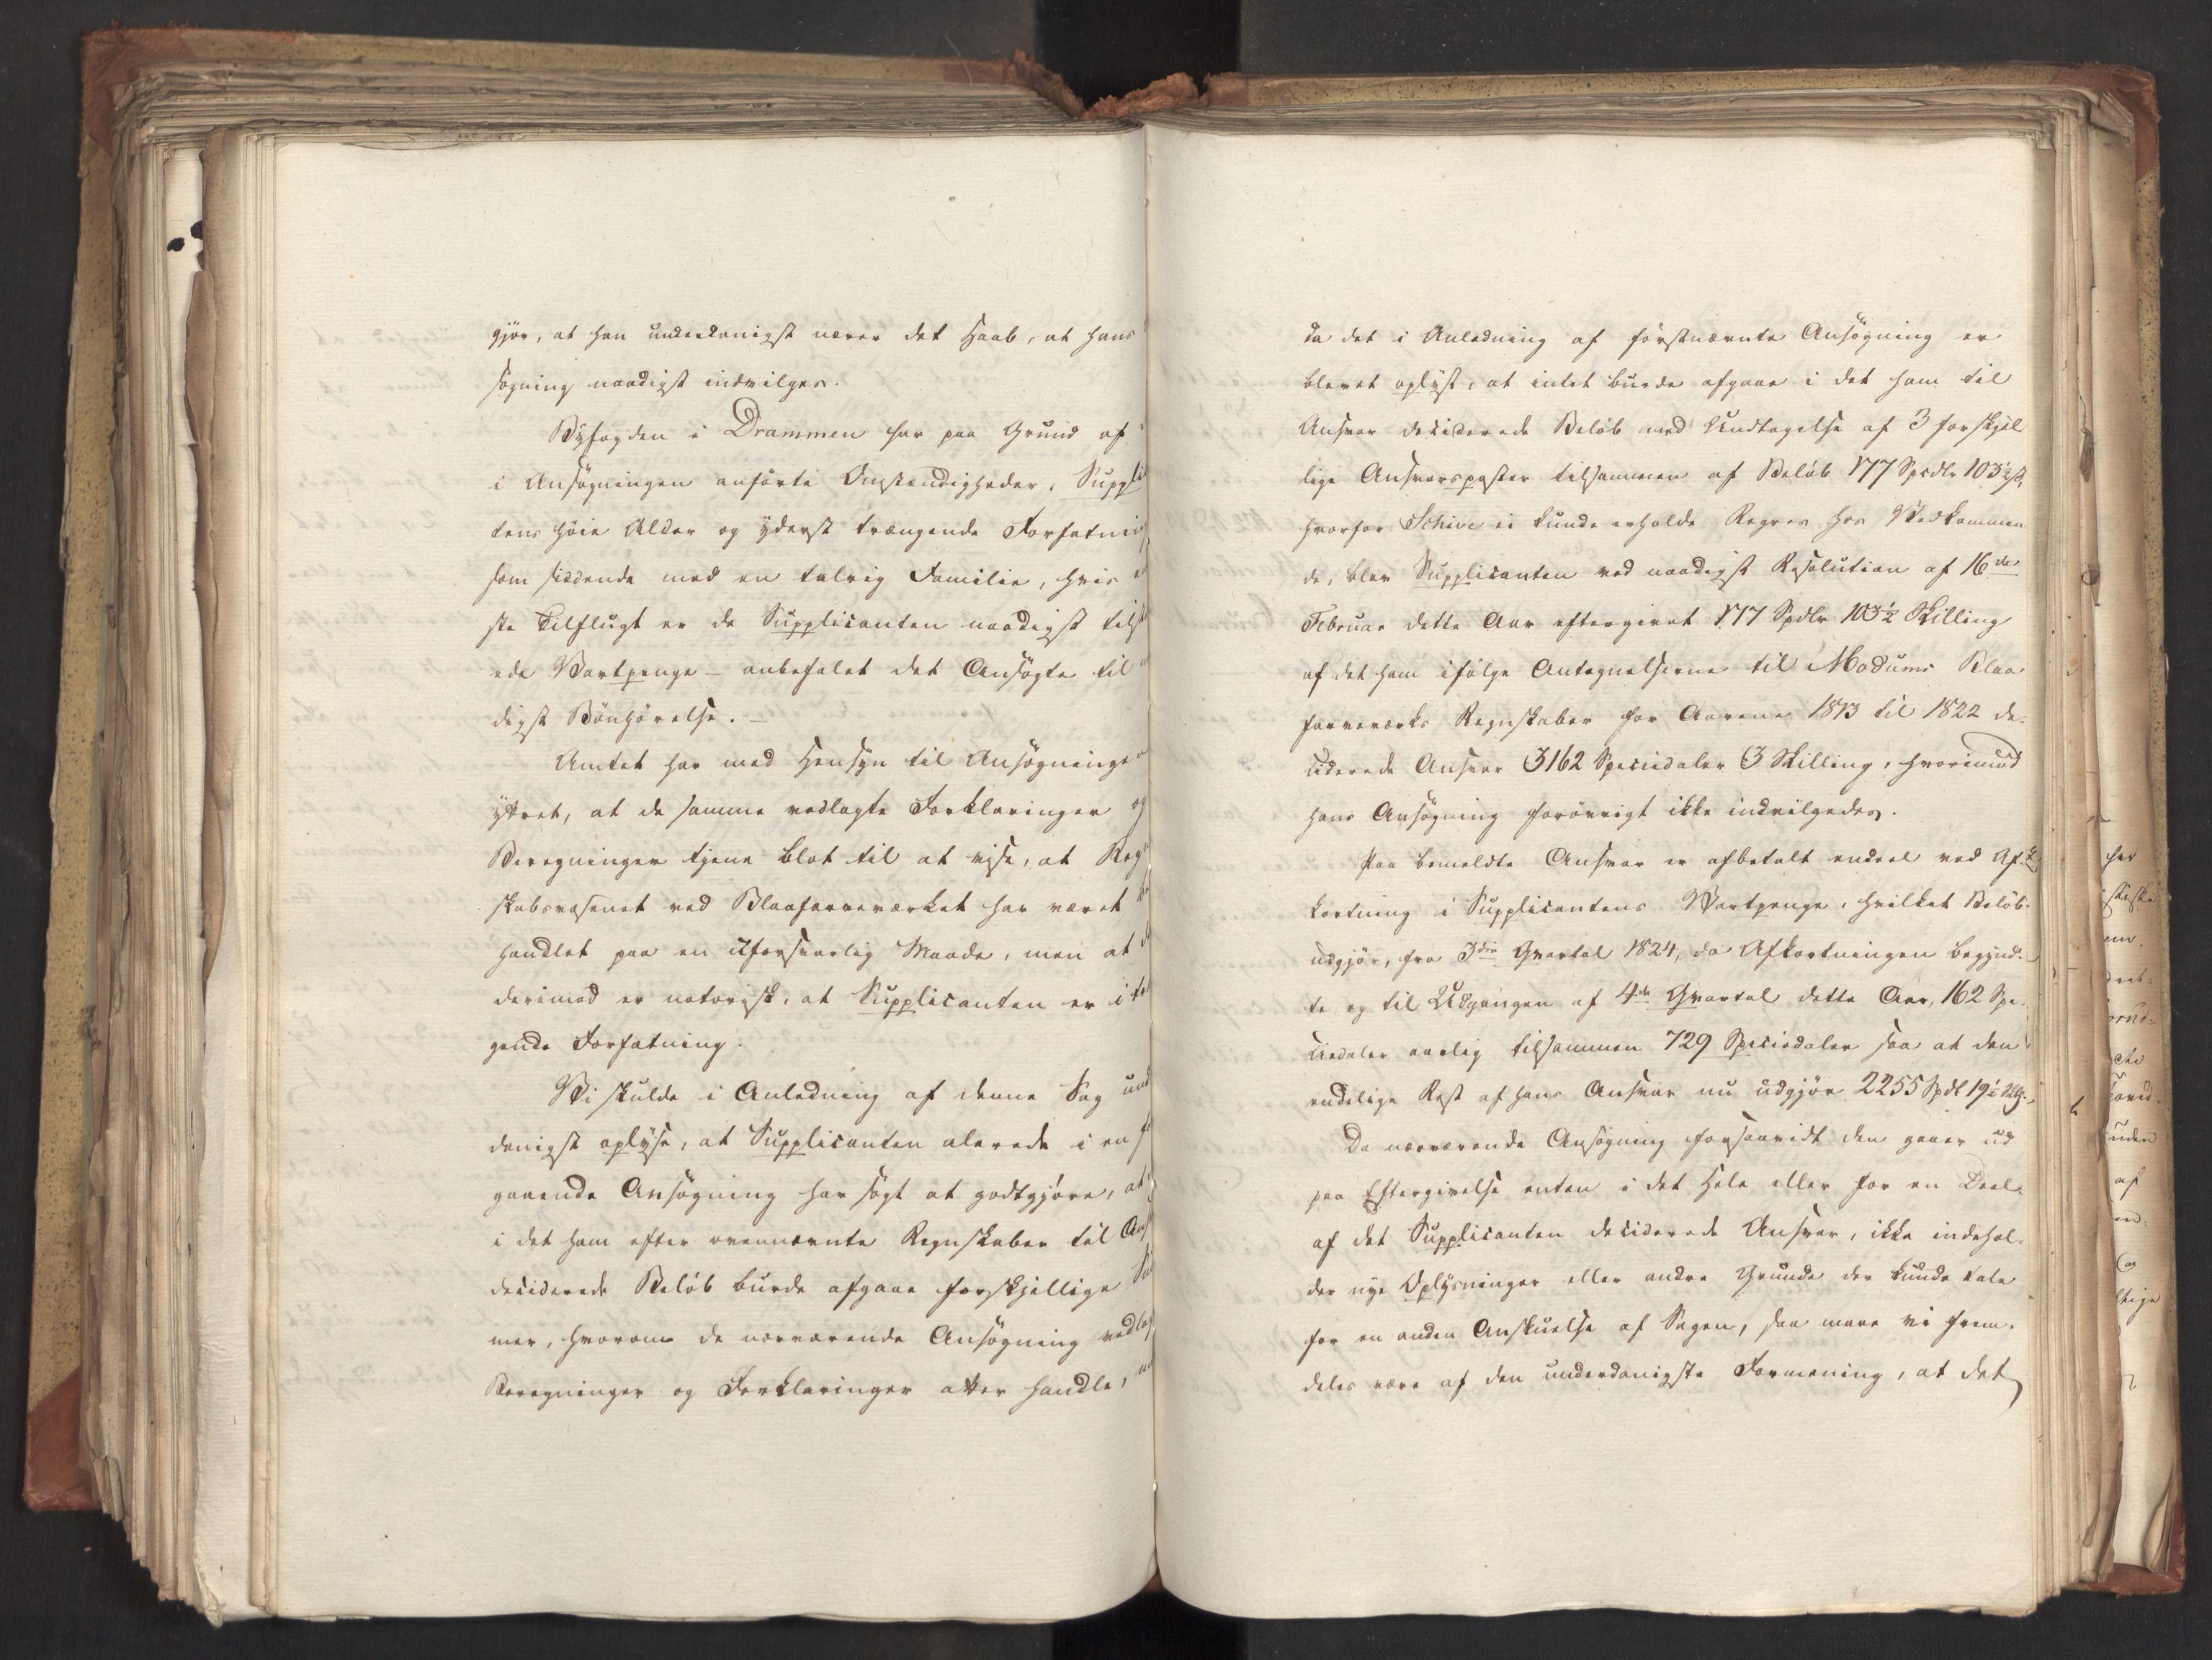 gjør, at han underdanigst nærer det Haab, at hans
søgning naadigst indvilges.
Byfogden i Drammen har paa Grund af
i Ansøgningen anførte Omstændigheder, Suppli
tens høie Alder og yderst trængende Forfatning
som siddende med en talrig Familie, hvis
ste Tilflugt er de Supplicanten naadigst tilst
ede Vartpenge – anbefalet det Ansøgte til
digst Bønhørelse. –
Amtet har med Hensyn til Ansøgningen
yttret, at de samme vedlagte Forklaringer og
Beregninger tjene blot til at vise, at Regn
skabsvæsenet ved Blaafarveværket har været
handlet paa en uforsvarlig Maade, men at
derimod er notorisk, at Supplicanten er i træn
gende Forfatning.
Vi skulde i Anledning af denne Sag und
danigst oplyse, at Supplicanten alerede i en f
gaaende Ansøgning har søgt at godtgjøre, at
i det ham efter ovennævnte Regnskaber til Ans
deciderede Beløb burde afgaae forskjellige
mer, hvorom de nærværende Ansøgning vedlag
Beregninger og Forklaringer atter handle,
da det i Anledning af førstnævnte Ansøgning er
blevet oplyst, at intet burde afgaae i det ham til
Ansvar deciderede Beløb med Undtagelse af 3 forskjel
lige Ansvarsposter tilsammen af Beløb 177 Spdlr 103½ ß,
hvorfor Schive ei kunde erholde Regres hos Vedkommen
de, blev Supplicanten ved naadigst Resolution af 16de
Februar dette Aar eftergivet 177 Spdlr 103½ Skilling
af det ham ifølge Antegnelserne til Modums Blaa
farveværks Regnskaber for Aarene 1813 til 1822 de-
ciderede Ansvar 3162 Speciedaler 3 Skilling, hvorimod
hans Ansøgning forøvrigt ikke indvilgedes.
Paa bemeldte Ansvar er afbetalt endeel ved Af-
kortning i Supplicantens Vartpenge, hvilket Beløb
udgjør, fra 3die Qvartal 1824, da Afkortningen begynd-
te og til Udgangen af 4de Qvartal dette Aar, 162 Spe-
ciedaler aarlig tilsammen 729 Speciedaler saa at den
endelige Rest af hans Ansvar nu udgjør 2255 Spdl 19½ Sg.
Da nærværende Ansøgning forsaavidt den gaaer ud
paa Eftergivelse enten i det Hele eller for en Deel
af det Supplicanten deciderede Ansvar, ikke indehol-
der nye Oplysninger eller andre Grunde der kunde tale
for en anden Anskuelse af Sagen, saa maae vi frem-
deles være af den underdanigste Formening, at det